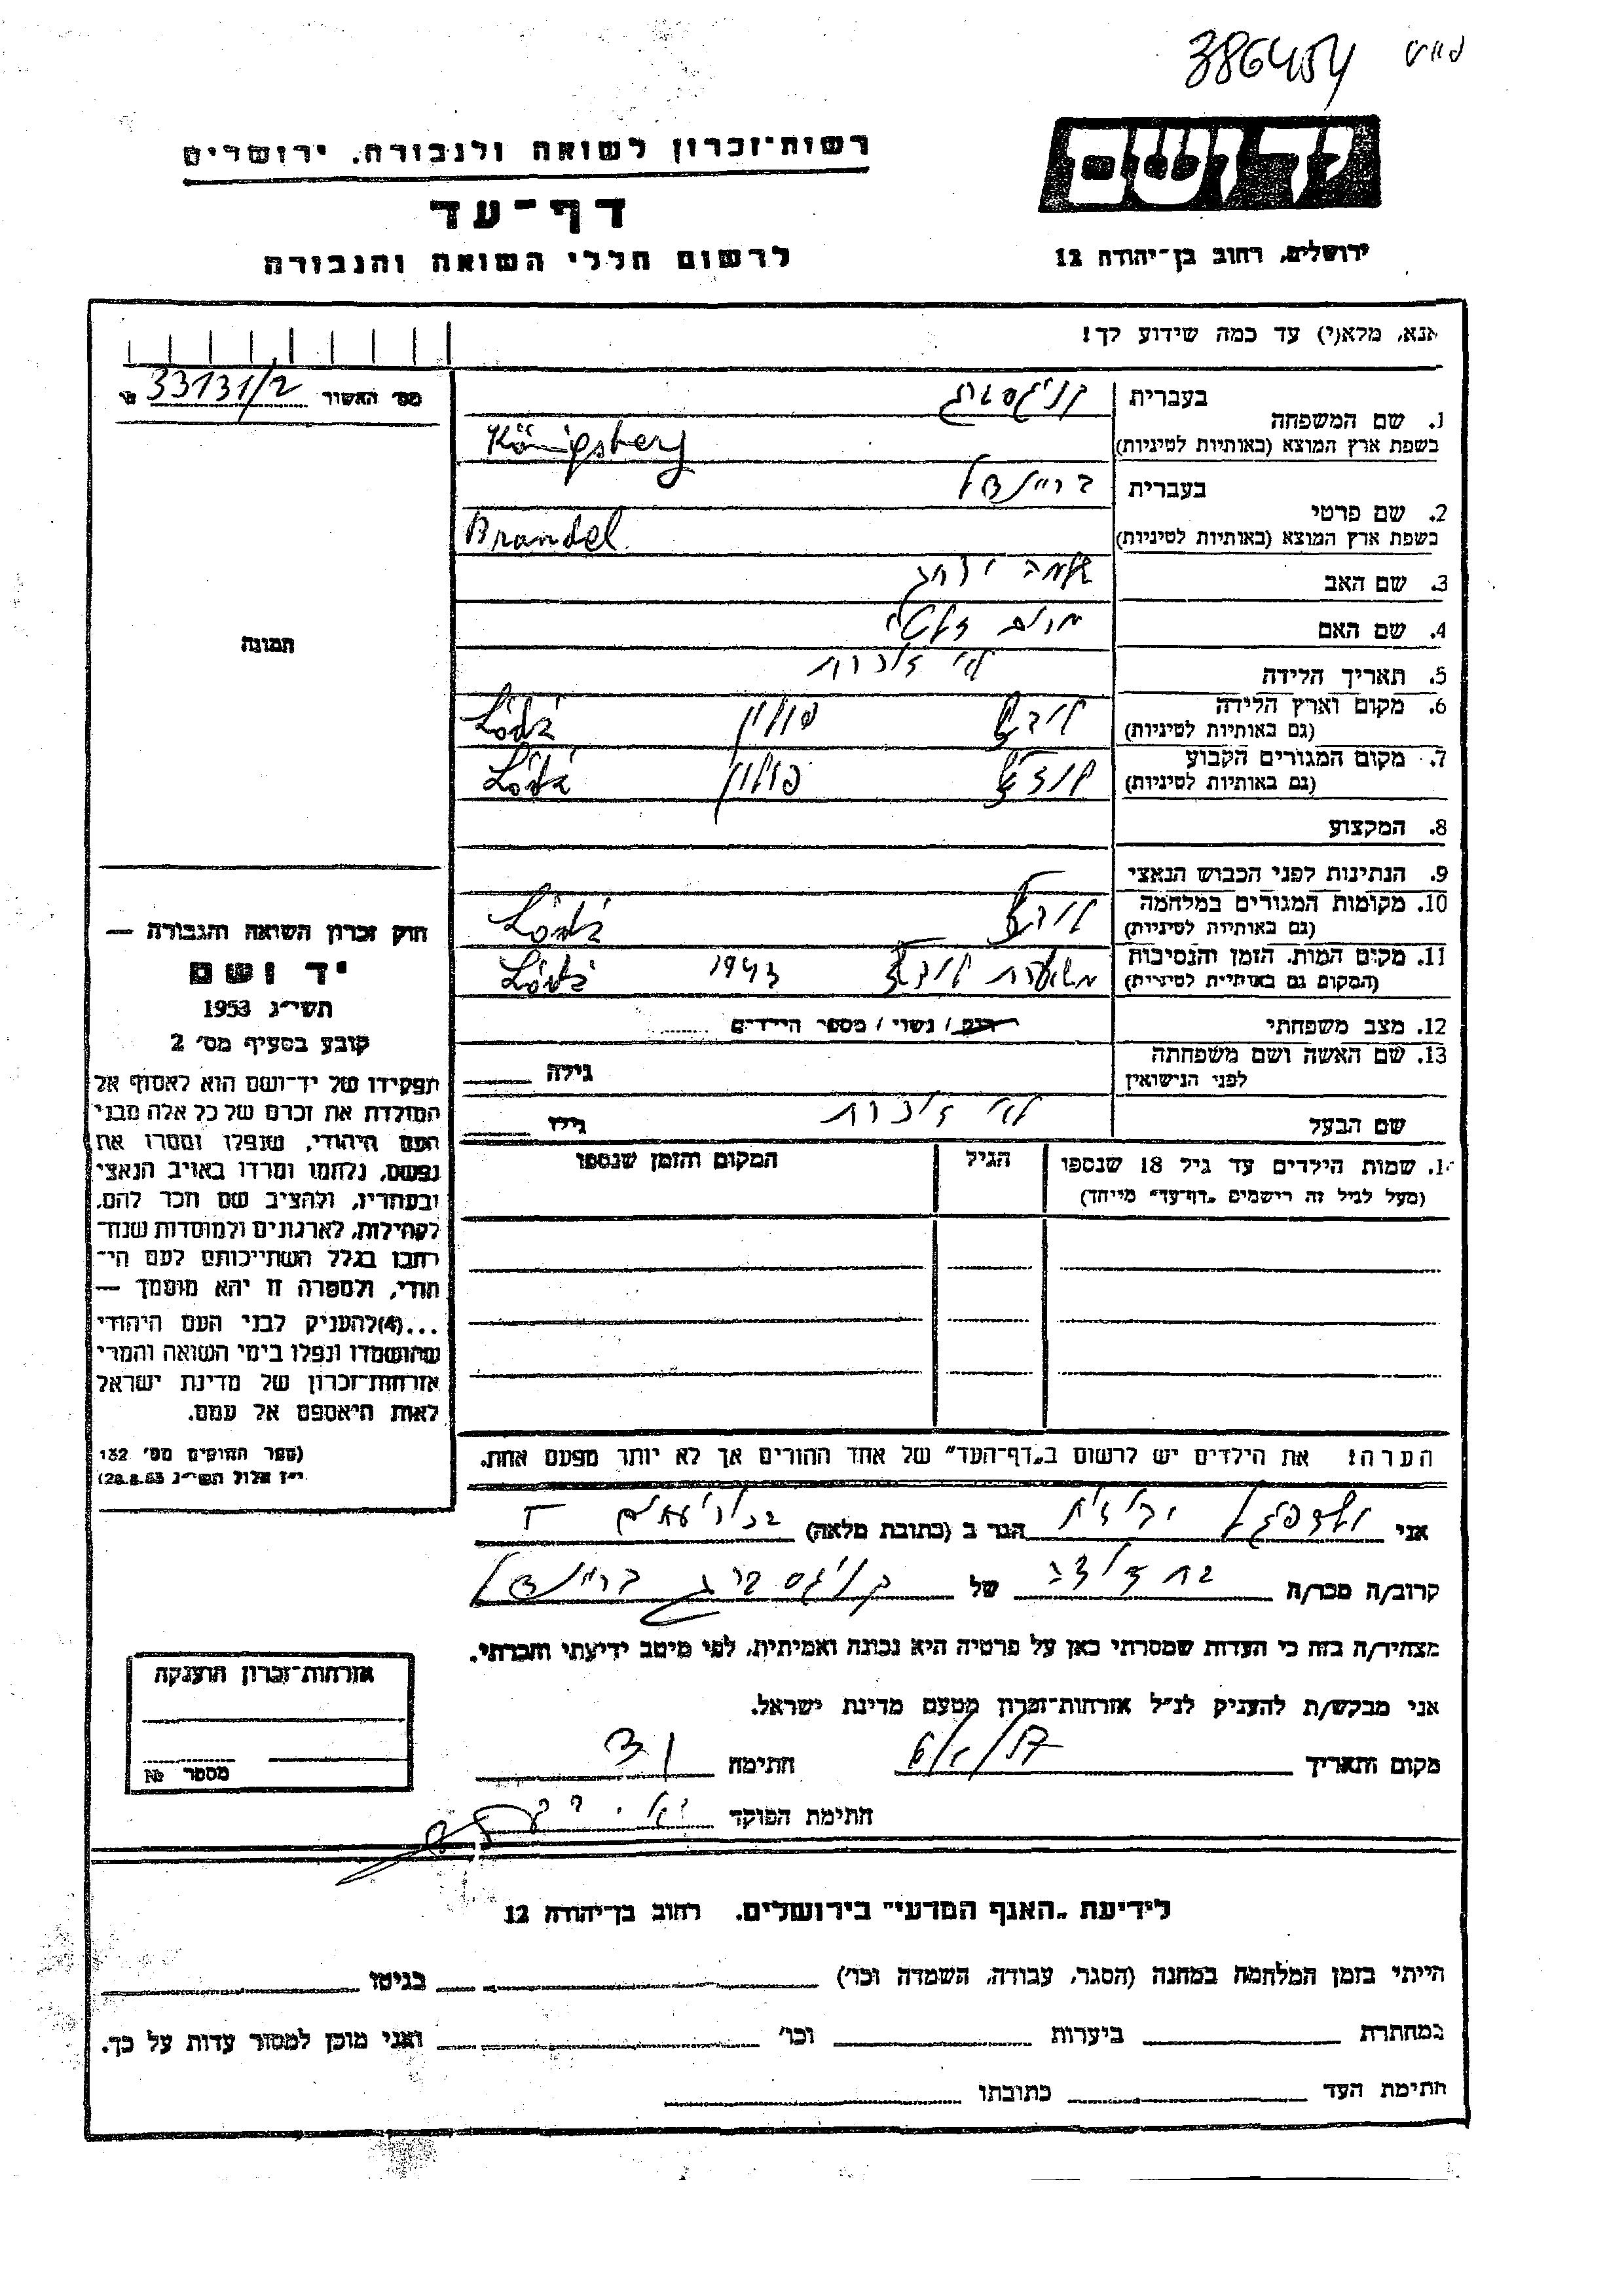 386454
רשות־זכרון לשואה ולגבורה, ירושלים
יד ושם
דף־עד
לרשום חללי השואה והגבורה
ירושלים, רחוב בן־יהודה 12
אנא, מלא(י) עד כמה שידוע לך!
מס׳ האשור № 33131/2
1. שם המשפחה
בעברית קניגסברג
בשפת ארץ המוצא (באותיות לטיניות) Königsberg
2. שם פרטי
בעברית בריינדל
בשפת ארץ המוצא (באותיות לטיניות) Brandel
3. שם האב
4. שם האם
5. תאריך הלידה לא זוכרת
6. מקום וארץ הלידה (גם באותיות לטיניות) לודז׳ פולין Łódź
7. מקום המגורים הקבוע (גם באותיות לטיניות) לודז׳ פולין Łódź
8. המקצוע
9. הנתינות לפני הכבוש הנאצי
10. מקומות המגורים במלחמה (גם באותיות לטיניות) לודז׳ Łódź
11. מקום המות, הזמן והנסיבות (המקום גם באותיות לטיניות) לודז׳ 1943 Łódź
12. מצב משפחתי רווק / נשוי / מספר הילדים
13. שם האשה ושם משפחתה לפני הנישואין גילה
שם הבעל לא זוכרת גילו
14. שמות הילדים עד גיל 18 שנספו הגיל המקום והזמן שנספו
(מעל לגיל זה רישמים „דף־עד״ מייחד)
הערה! את הילדים יש לרשום ב„דף־העד״ של אחד ההורים אך לא יותר מפעם אחת.
תמונה
חוק זכרון השואה והגבורה —
יד ושם
תשי״ג 1953
קובע בסעיף מס׳ 2
תפקידו של יד־ושם הוא לאסוף אל
המולדת את זכרם של כל אלה מבני
העם היהודי, שנפלו ומסרו את
נפשם, נלחמו ומרדו באויב הנאצי
ובעוזריו, ולהציב שם וזכר להם,
לקהילות, לארגונים ולמוסדות שנח־
רבו בגלל השתייכותם לעם הי־
הודי, ולמטרה זו יהא מוסמך —
...(4)להעניק לבני העם היהודי
שהושמדו ונפלו בימי השואה והמרי
אזרחות־זכרון של מדינת ישראל
לאות היאספם אל עמם.
(ספר החוקים מס׳ 132
י״ז אלול תשי״ג 28.8.53)
אני הגר ב (כתובת מלאה)
קרוב/ה מכר/ה בת דודה של קניגסברג בריינדל
מצהיר/ה בזה כי העדות שמסרתי כאן על פרטיה היא נכונה ואמיתית, לפי מיטב ידיעתי והכרתי.
אני מבקש/ת להעניק לנ״ל אזרחות־זכרון מטעם מדינת ישראל.
מקום ותאריך חתימה
חתימת הפוקד
אזרחות־זכרון הוענקה
מספר №
לידיעת „האגף המדעי״ בירושלים, רחוב בן־יהודה 12
הייתי בזמן המלחמה במחנה (הסגר, עבודה, השמדה וכו׳) בגיטו
במחתרת ביערות וכו׳ ואני מוכן למסור עדות על כך.
חתימת העד כתובתו